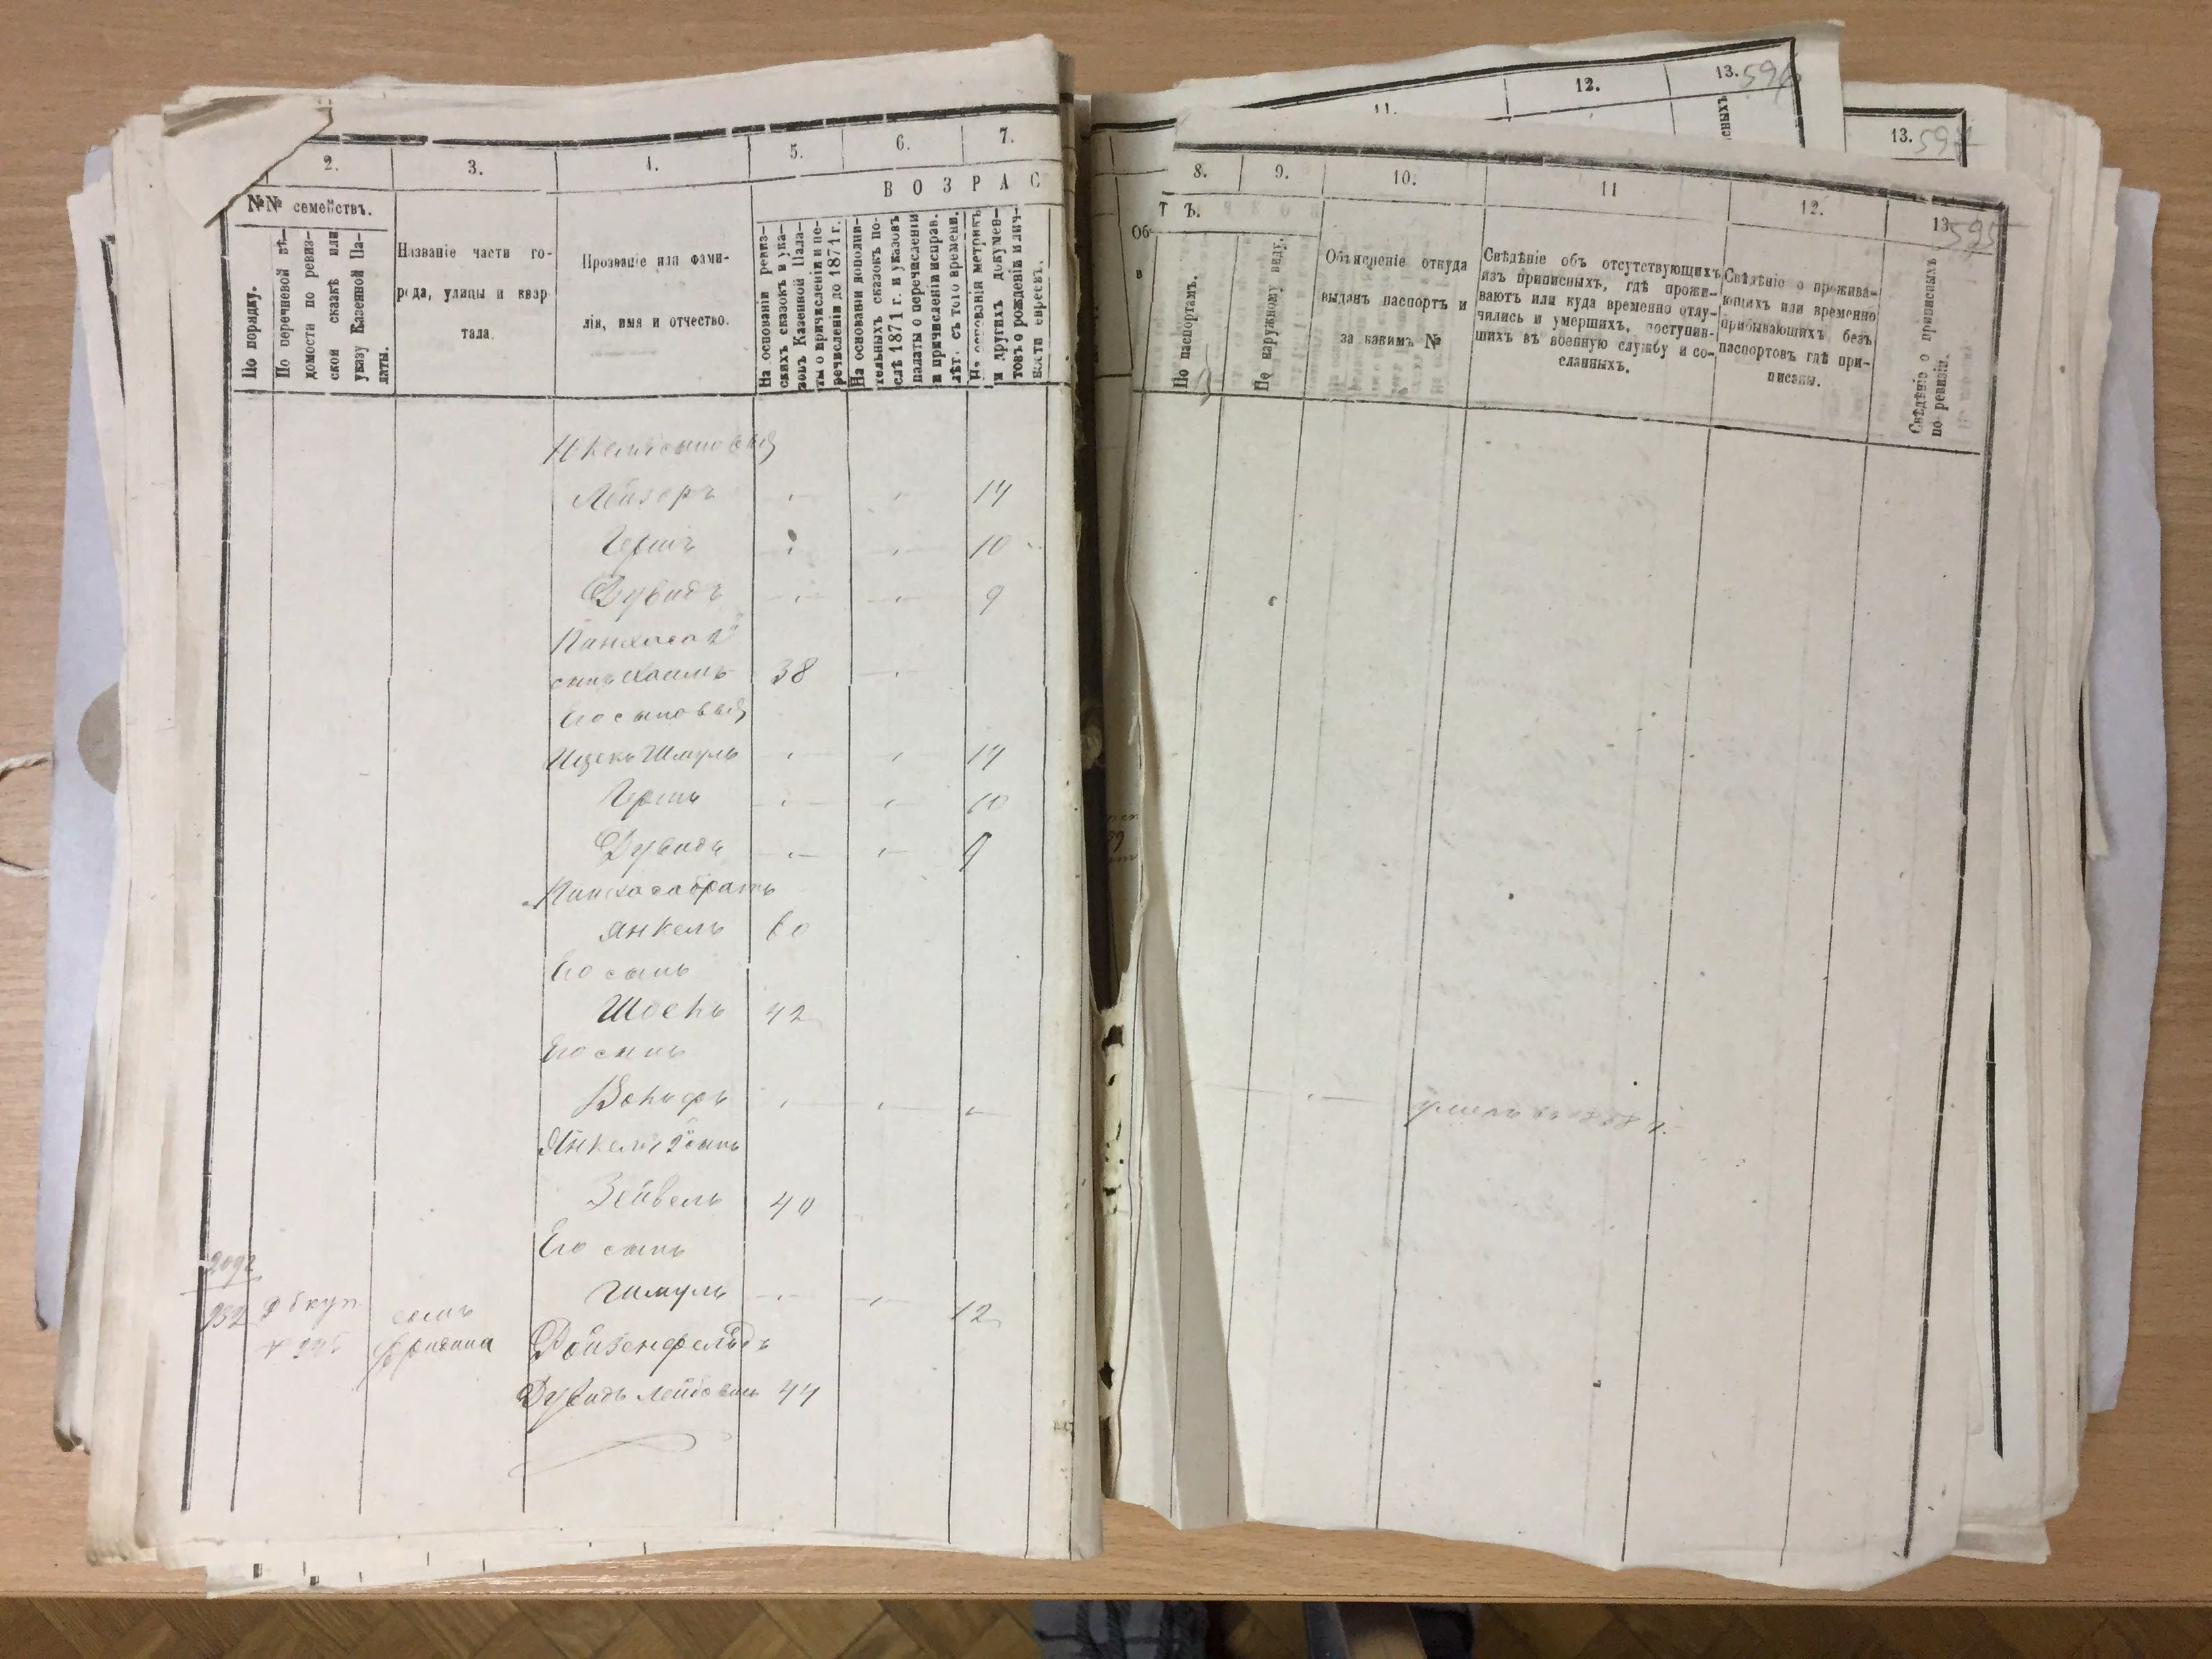 2.
3.
4.
5.
6.
7.
В О З Р А С
№№ семействъ.
По порядку.
По перечневой вѣ-
домости по ревиз-
ской сказкѣ или
указу Казенной Па-
латы.
Названіе части го-
рода, улицы и квар
тала.
Прозваніе или фами-
лія, имя и отчество.
На основаніи ревиз-
скихъ сказокъ и ука-
зовъ Казенной Пала-
ты о причисленіи и пе-
речисленіи до 1871 г.
На основаніи дополни-
тельныхъ сказокъ по-
слѣ 1871 г. и указовъ
палаты о перечисленіи
и причисленіи исправ.
лѣт. съ того времени.
На основаніи метрикъ
и другихъ докумен-
товъ о рожденіи и лич-
ности евреевъ.
Янкеля сыновья
Лейзоръ 14
Гершъ 10
Дувидъ 9
Панхаса 2й
сынъ Хаимъ 38
Его сыновья
Ицекъ Шмуль 14
Гершъ 10
Дувидъ 9
Панхаса братъ
Янкель 60
Его сынъ
42
Его сынъ
Вольфъ
Янкеля 2й сынъ
Зейвель 40
Его сынъ
Шмуль 12
2092
932
Дувидъ Лейбовичъ 44
11.
12.
13. 596
сныхъ
13. 597
8.
9.
10.
11
12.
13. 595
Т Ъ.
Об-
в
По паспортамъ.
По наружному виду.
Объясненіе откуда
выданъ паспортъ и
за какимъ №
Свѣдѣніе объ отсутствующихъ
изъ приписныхъ, гдѣ прожи-
ваютъ или куда временно отлу-
чились и умершихъ, поступив-
шихъ въ военную службу и со-
сланныхъ.
Свѣдѣніе о прожива-
ющихъ или временно
прибывающихъ безъ
паспортовъ гдѣ при-
писаны.
Свѣдѣніе о приписныхъ
по ревизіи.